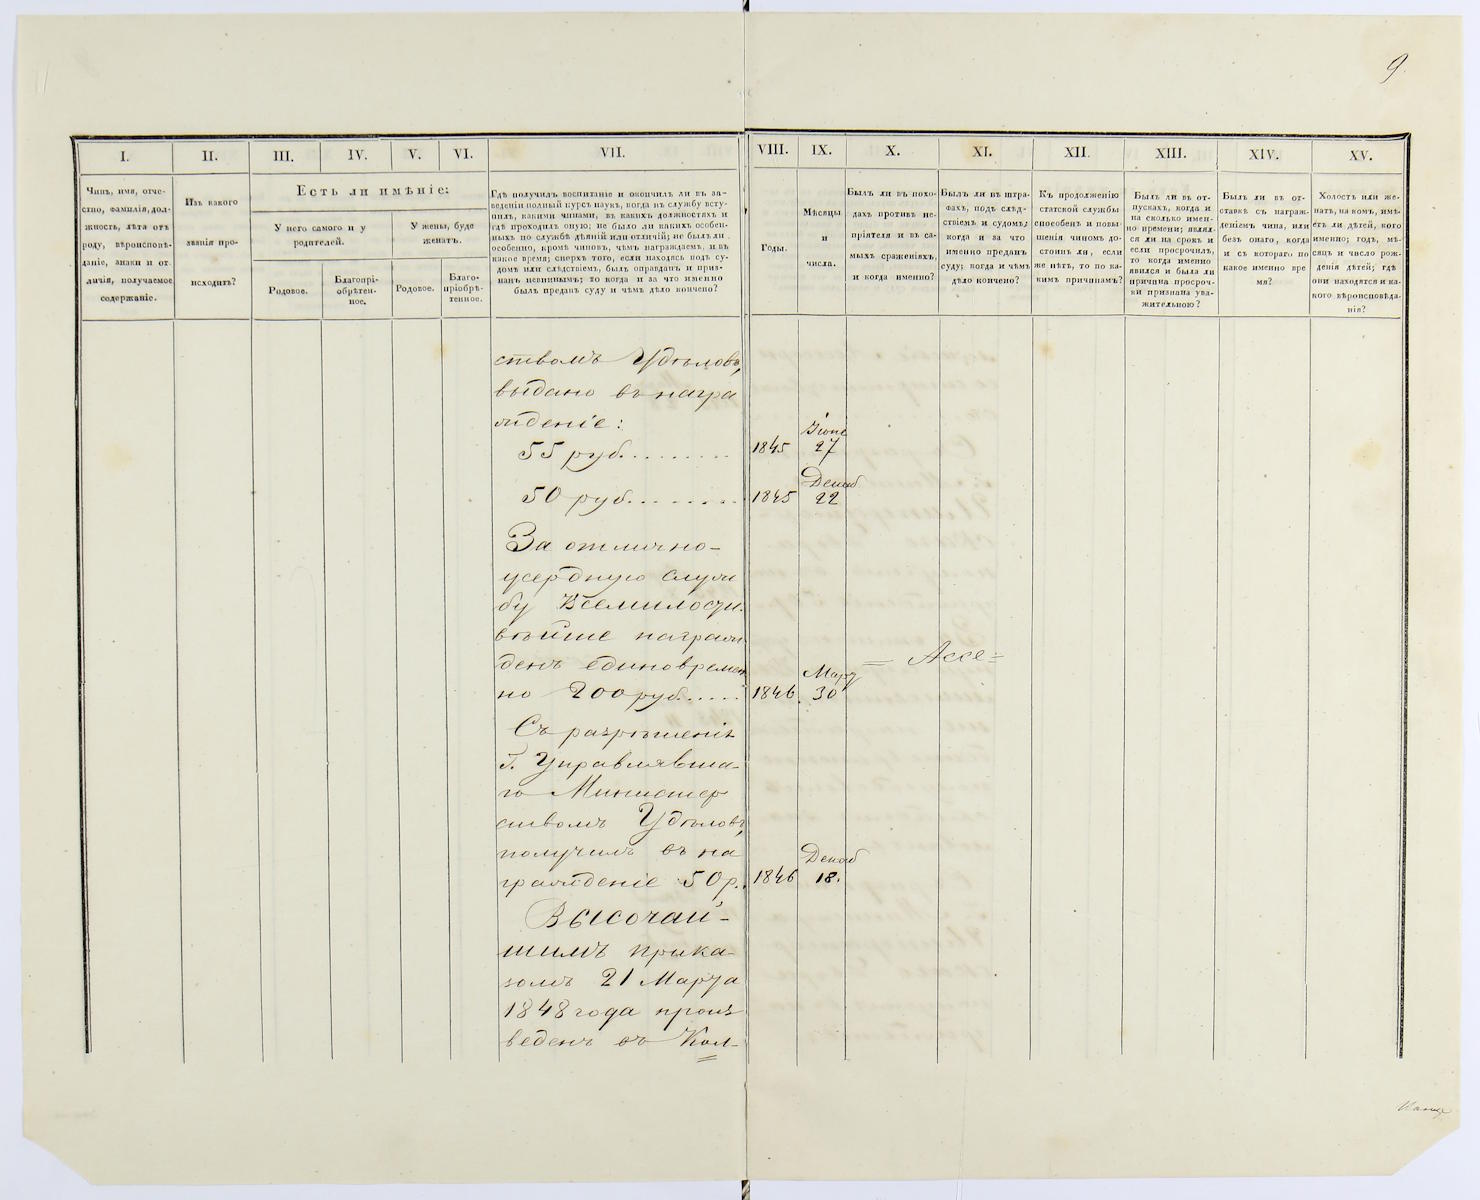 9.
I.
II.
III.
IV.
V.
VI.
VII.
VIII.
IX.
X.
XI.
XII.
XIII.
XIV.
XV.
Чинъ, имя, отче-
ство, фамилія, дол-
жность, лѣта отъ
роду, вѣроисповѣ-
даніе, знаки и от
личія, получаемое
содержаніе.
Изъ какого
званія про-
исходитъ?
Есть ли имѣніе:
У него самого и у
родителей.
У жены, буде
женатъ.
Родовое.
Благопрі-
обрѣтен-
ное.
Родовое.
Благо-
пріобрѣ-
тенное.
Гдѣ получилъ воспитаніе и окончилъ ли въ за-
веденіи полный курсъ наукъ, когда въ службу всту
пилъ, какими чинами, въ какихъ должностяхъ и
гдѣ проходилъ оную; не было ли какихъ особен-
ныхъ по службѣ дѣяній или отличій; не былъ ли
особенно, кромѣ чиновъ, чѣмъ награждаемъ, и въ
какое время; сверхъ того, если находясь подъ су-
домъ или слѣдствіемъ, былъ оправданъ и приз-
нанъ невиннымъ; то когда и за что именно
былъ преданъ суду и чѣмъ дѣло кончено?
Годы.
Мѣсяцы
и
числа.
Былъ ли въ похо-
дахъ противъ не-
пріятеля и въ са-
мыхъ сраженіяхъ,
и когда именно?
Былъ ли въ штра-
фахъ, подъ слѣд-
ствіемъ и судомъ;
когда и за что
именно преданъ
суду; когда и чѣмъ
дѣло кончено?
Къ продолженію
статской службы
способенъ и повы-
шенія чиномъ до-
стоинъ ли, если
же нѣтъ, то по ка-
кимъ причинамъ?
Былъ ли въ от-
пускахъ, когда и
на сколько имен-
но времени; являл-
ся ли на срокъ и
если просрочилъ,
то когда именно
явился и была ли
причина просроч-
ки признана ува-
жительною?
Былъ ли въ от-
ставкѣ съ награж-
деніемъ чина, или
безъ онаго, когда
и съ котораго по
какое именно вре
мя?
Холостъ или же-
натъ, на комъ, имѣ-
етъ ли дѣтей, кого
именно; годъ, мѣ-
сяцъ и число рож-
денія дѣтей; гдѣ
они находятся и ка-
кого вѣроисповѣда-
нія?
ствомъ Удѣловъ,
выдано въ награ
жденіе:
55 руб.........
1845
Іюня
27
50 руб.........
1845
Декаб
22
За отлично-
усердную служ
бу Всемилости
вѣйше награж
денъ единовремен
но 200 руб.....
1846.
Март
30
= Ассе=
Съ разрѣшенія
Г. Управлявша-
го Министер
ствомъ Удѣловъ,
получилъ въ на
гражденіе 50 р.
1846
Декаб
18.
Высочай-
шимъ прика-
зомъ 21 Марта
1848 года произ
веденъ въ Кол-